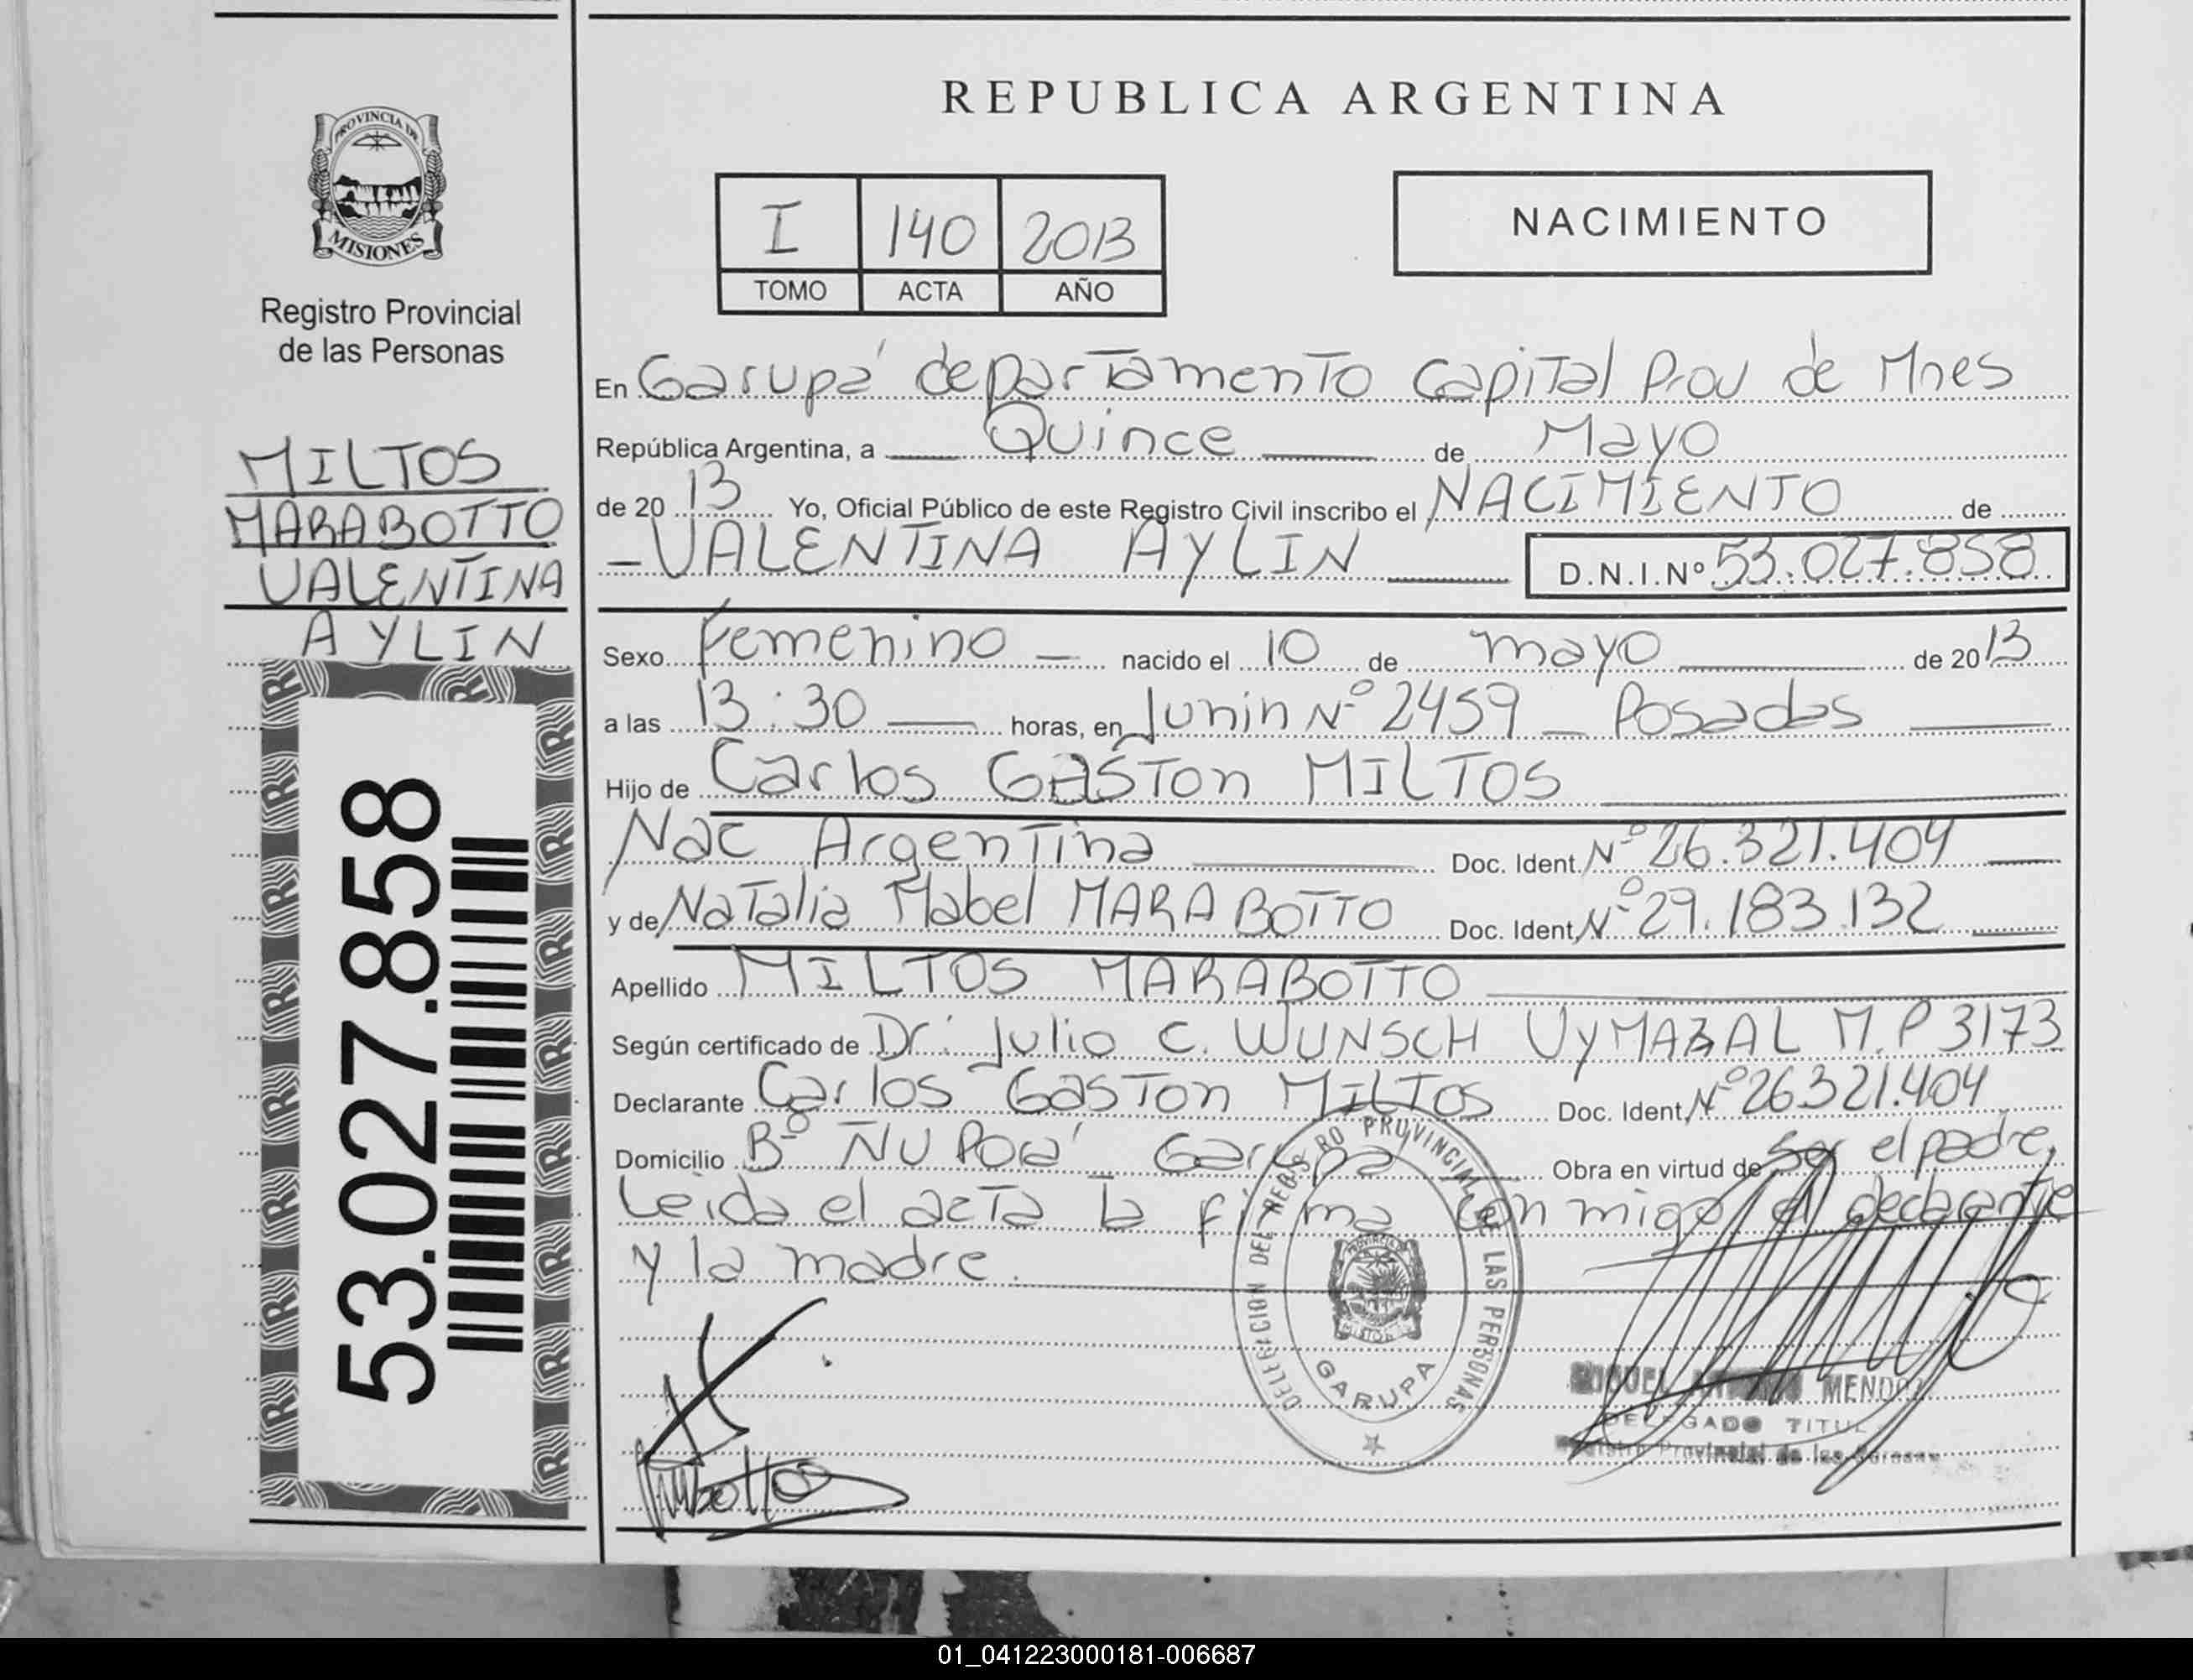 REPUBLICA ARGENTINA
PROVINCIA DE
MISIONES
Registro Provincial
de las Personas
MILTOS
MARABOTTO
VALENTINA
AYLIN
53.027.858
I 140 2013
TOMO ACTA AÑO
NACIMIENTO
En Garupá departamento Capital Prov de Mnes
República Argentina, a Quince de Mayo
de 2013 Yo, Oficial Público de este Registro Civil inscribo el NACIMIENTO de
- VALENTINA AYLIN D.N.I.Nº 53.027.858
Sexo Femenino - nacido el 10 de mayo de 2013
a las 13:30 horas, en Junin Nº 2459 - Posadas
Hijo de Carlos Gastón MILTOS
Nac Argentina Doc. Ident. Nº 26.321.404
y de Natalia Mabel MARABOTTO Doc. Ident. Nº 29.183.132
Apellido MILTOS MARABOTTO
Según certificado de Dr. Julio C. WUNSCH VyMAZAL M.P 3173
Declarante Carlos Gaston MILTOS Doc. Ident. Nº 26321.404
Domicilio Bº ÑU Porá - Garupa Obra en virtud de Ser el padre,
Leida el acta la firma con migo el declarante
y la madre.
DELEGACION DEL REGISTRO PROVINCIAL DE LAS PERSONAS
PROVINCIA DE
MISIONES
GARUPA
MIGUEL MENDOZA
DELEGADO TITULAR
Registro Provincial de las Personas
01_041223000181-006687